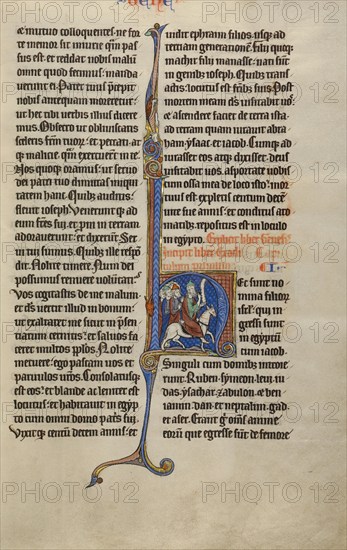 et mutuo colloquentes. ne forte
memor sit iniurie quam passus
est. et reddat nobis malum
omne quod fecimus. mandaverunt
ei. Pater tuus precepit
nobis antequam moreretur.
ut hec tibi verbis illius diceremus.
Obsecro ut obliviscaris
sceleris fratrum tuorum. et peccati. atque
malicie quam exercuerunt in te.
Nos quoque oramus. ut servis
dei patri tuo dimittas iniquitatem
hanc. Quibus auditis:
flevit ioseph. Veneruntque ad
eum fratres sui. et proni in terram
adoraverunt. et dixerunt. Servi
tui sumus. Quibus ille respondit.
Nolite timere. Num dei
possumus rennuere voluntatem.
Vos cogitastis de me malum:
et deus vertit illud in bonum.
ut exaltaret me sicut in presentiarum
cernitis. et salvos faceret
multos populos. Nolite
metuere. ego pascam vos et
parvulos vestros. Consolatusque
est eos. et blande ac leniter est
locutus. et habitavit in egypto
cum omni domo patris sui.
Vixitque centum decem annis. et
vidit ephraim filios. usque ad
terciam generationem. Filii quoque
machir filii manasse. nati sunt
in genibus ioseph. Quibus transactis:
locutus est fratribus suis. Post
mortem meam deus visitabit vos.
et ascendere faciet de terra ista
ad terram quam iuravit abraham.
ysaac et iacob. Cumque adiurasset
eos atque dixisset. deus
visitabit vos. asportate vobiscum
ossa mea de loco isto. mortuus
est expletis centum decem
vite sue annis. et conditus aromatibus.
repositus est in loculo
in egypto. Explicit liber Genesis.
Incipit liber Exodi
I.
Hec sunt nomina
filiorum
israel. qui ingressi
sunt
in egyptum
cum iacob.
Singuli cum domibus introierunt.
Ruben. symeon. levi. iudas.
ysachar. zabulon. et beniamin.
dan. et neptalim. gad.
et aser. Erant igitur omnes anime
eorum que egresse sunt de femore
PHOTO 12